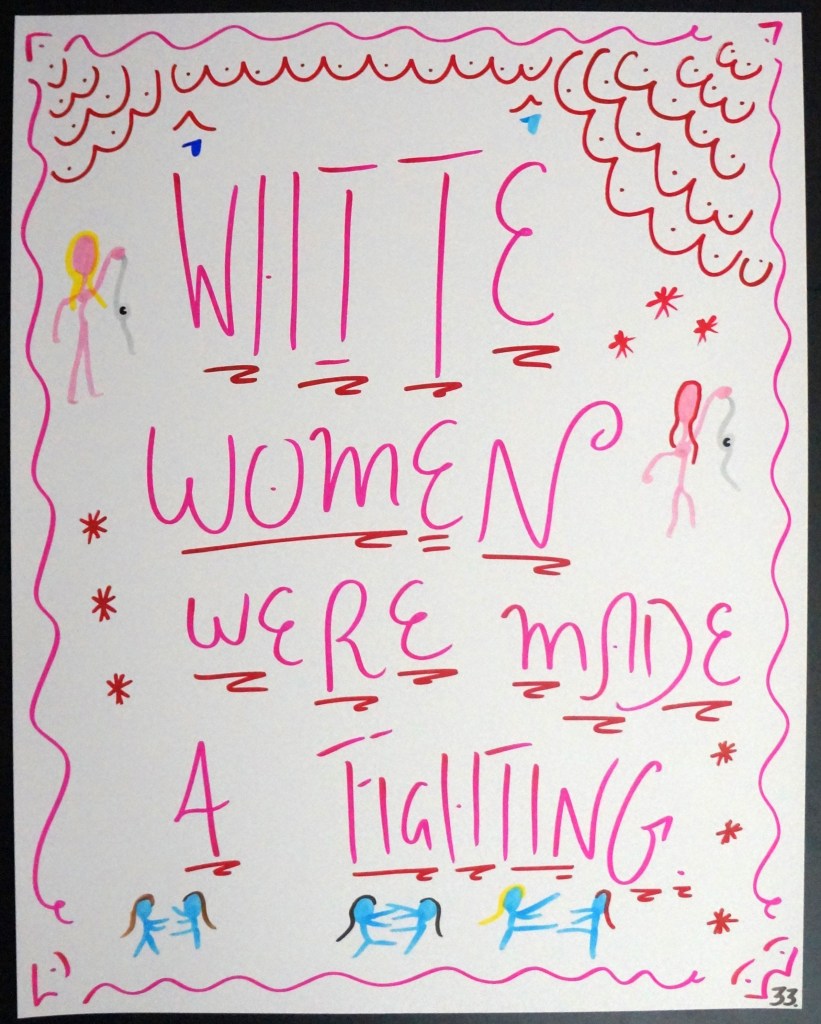 WHITE
WOMEN
WERE MADE
A FIGHTING.
33.